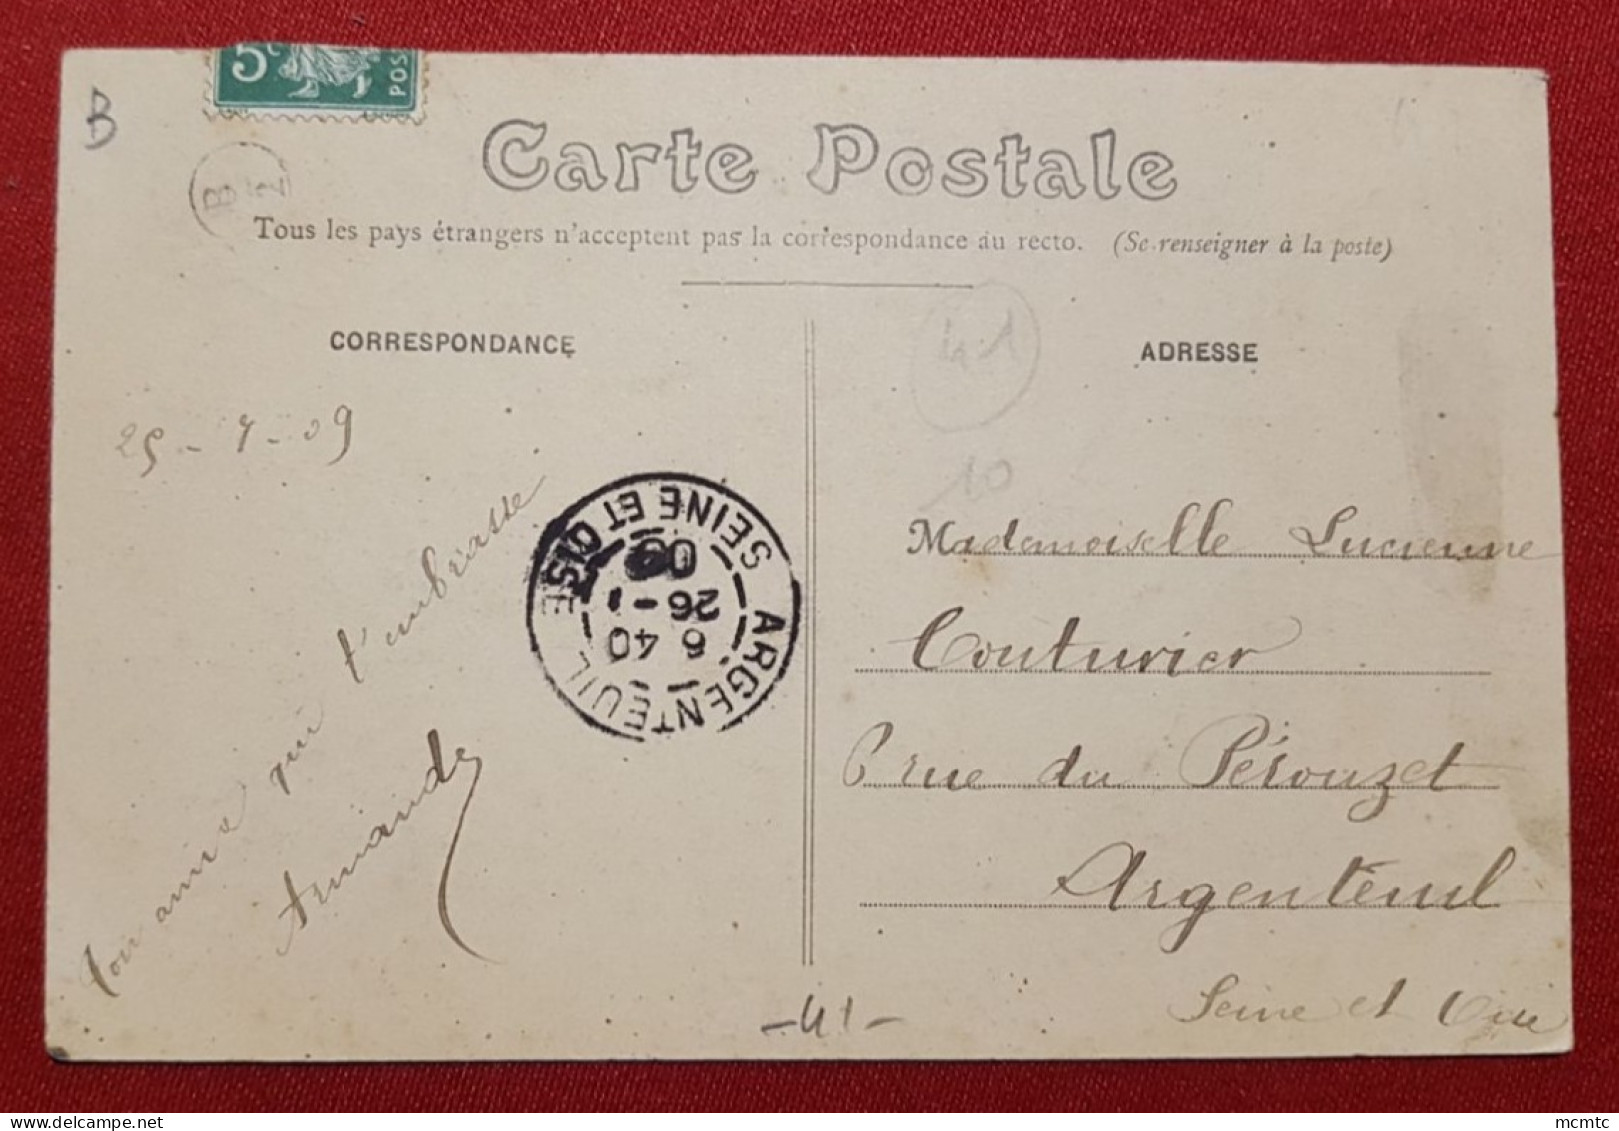 5c
POS
B
B
2
Carte Postale
Tous les pays étrangers n'acceptent pas la correspondance au recto. (Se renseigner à la poste)
CORRESPONDANCE
25-1-09
Ton amie qui t'embrasse
Armande
ARGENTEUIL
SEINE ET OISE
6 40
26-1
09
ADRESSE
41
10
Mademoiselle Lucienne
Couturier
6 rue du Pérouzet
Argenteuil
Seine et Oise
-41-
mcmtc